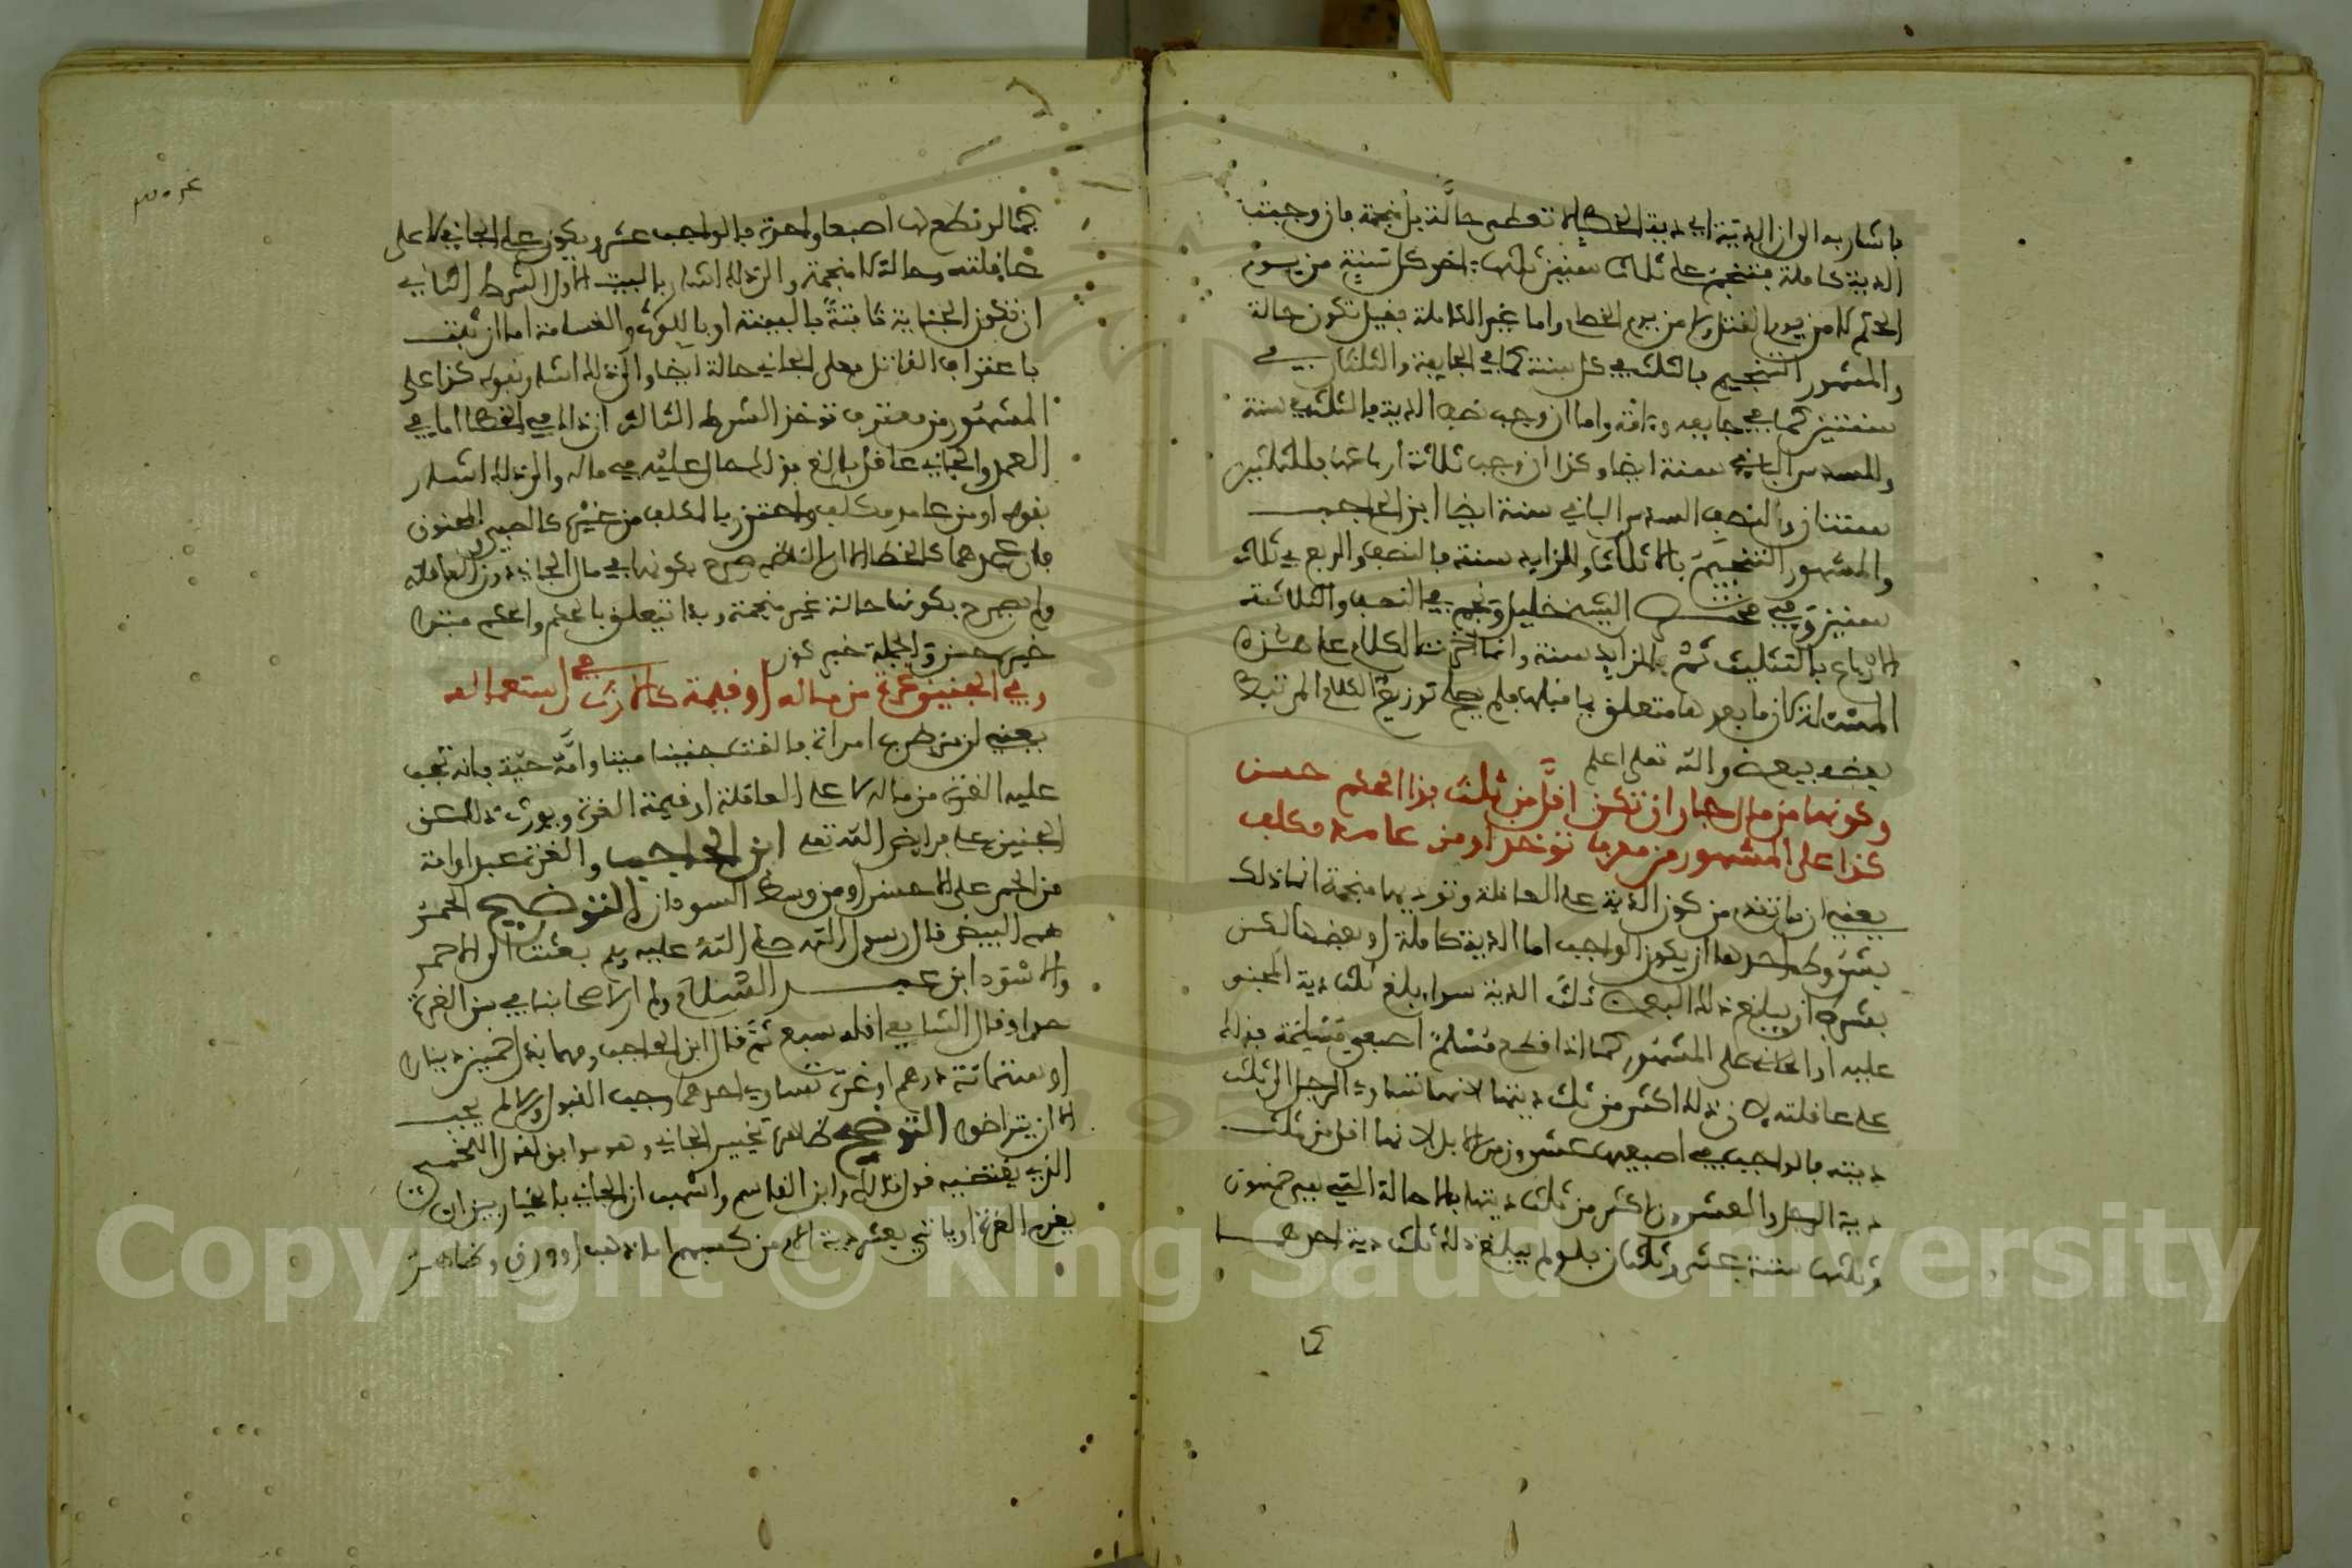 باشار به الى ان الدية اي دية الخطا لا تعطى حالة بل منجمة فان وجبت
الدية كاملة فتنجم على ثلاث سنين ثلثها باخر كل سنة من يوم
الحكم لا من يوم القتل ولا من يوم الخطا واما غير الكاملة فقيل تكون حالة
والمشهور التنجيم بالثلث في كل سنة كما في الجايفة والثلثان في
سنتين كما في جايفة وامة واما ان وجب نصف الدية فالثلث في سنة
والسدس الباقي سنة ايضا وكذا ان وجب ثلاثة ارباعها فللثلثين
سنتان والنصف السدس الباقي سنة ايضا ابن الحاجب
والمشهور التنجيم بالاثلاث وللزايد سنة فالنصف والربع في ثلاث
سنين وفي مختصر الشيخ خليل ونجم في النصف والثلاثة
الارباع بالتثليث ثم للزايد سنة وانما اخرت الكلام على هذه
المسئلة لان ما بعدها متعلق بما قبلها فلم يصلح توزيع الكلام المرتبط
بعضه ببعض والله تعلى اعلم
وكونها من مال جار ان تكن اقل من ثلث بذا الحكم حسن
كذا على المشهور من معترف توخذ او من عامد مكلف
يعني ان ما تقدم من كون الدية على العاقلة وتوديها منجمة انما ذلك
بشروط احدها ان يكون الواجب اما الدية كاملة او بعضها لكن
بشرط ان يبلغ ذلك البعض ثلث الدية سواء بلغ ثلث دية المجنى
عليه او الجاني على المشهور كما اذا قطع مسلم اصبعي مسلمة فذلك
على عاقلته لان ذلك اكثر من ثلث ديتها لانها تساوي الرجل الى ثلث
ديته فالواجب في اصبعيها عشرون من الابل لانها اقل من ثلث
دية الرجل والعشرون اكثر من ثلث ديتها بلا احالة التي هي خمسون
وثلثها ستة عشر وثلثان فلو لم يبلغ ذلك ثلث دية احدهما
كما لو قطع لها اصبعا واحدة فالواجب عشر ويكون على الجاني لا على
عاقلته وحالة لا منجمة والى ذلك اشار بالبيت الاول الشرط الثاني
ان تكون الجناية ثابتة بالبينة او باللوث والقسامة اما ان ثبتت
باعتراف القاتل فعلى الجاني حالة ايضا والى ذلك اشار بقوله كذا على
المشهور من معترف توخذ الشرط الثالث ان ذلك في الخطا اما في
العمد والجاني عاقل بالغ فذلك حال عليه في ماله والى ذلك اشار
بقوله او من عامد مكلف واحترز بالمكلف من غيره كالصبي والمجنون
فان عمدهما كالخطا الا ان الناظم صرح بكونها في مال الجاني دون العاقلة
ولم يصرح بكونها حالة غير منجمة وبذا يتعلق بالحكم والحكم مبتدا
خبره حسن والجملة خبر كون
وفي الجنين غرة من ماله او قيمة كالارث في استعماله
يعني ان من ضرب امراة فالقت جنينا ميتا وامه حية فانه تجب
عليه الغرة من ماله لا على العاقلة او قيمة الغرة ويورث ذلك عن
الجنين على فرايض الله تعلى ابن الحاجب والغرة عبد او امة
من الحمر على الاحسن او من وسط السودان التوضيح الحمر
هم البيض قال رسول الله صلى الله عليه وسلم بعثت الى الاحمر
والاسود ابن عبد السلام ولم ار لاصحابنا في سن الغرة
حدا وقال الشافعي اقله سبع ثم قال ابن الحاجب ومهما بذل خمسين دينارا
او ستمائة درهم او غرة تساوي احدهما وجب القبول والا لم يجب
الا ان يتراضوا التوضيح ظاهره تخيير الجاني وهو موافق لقول اللخمي
الذي يقتضيه قول مالك وابن القاسم واشهب ان الجاني بالخيار بين ان
يغرم الغرة او ياتي بعشر دية الام من كسبهم ان ذهب او ورق وظاهر